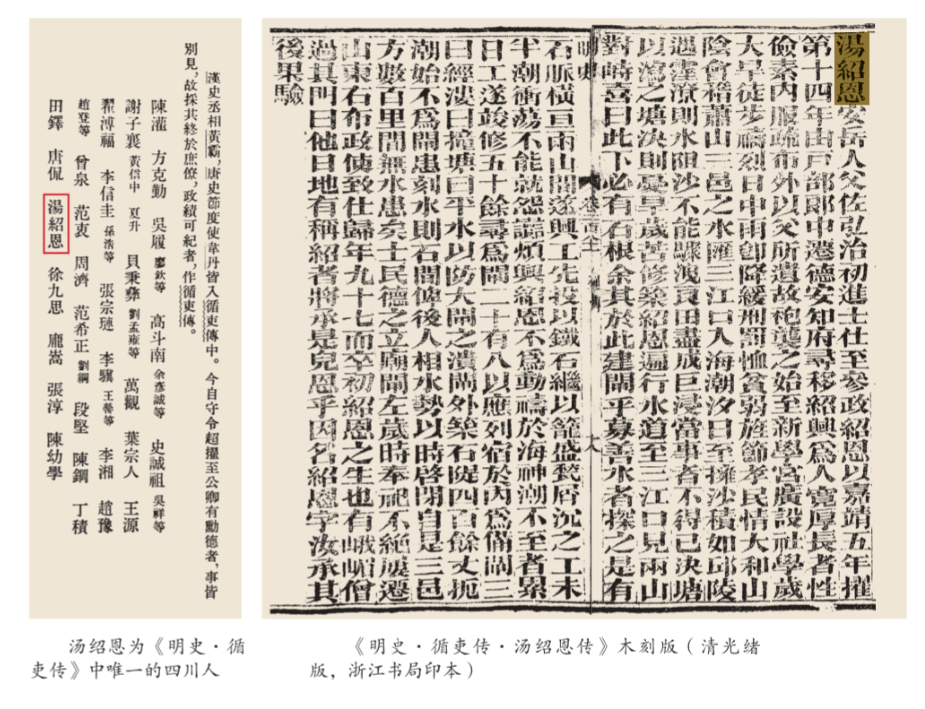 漢史丞相黃霸，唐史節度使韋丹皆入循吏傳中。今自守令超擢至公卿有勳德者，事皆
別見，故採其終於庶僚，政績可紀者，作循吏傳。
陳灌 方克勤 吳履 廖欽等 高斗南 余彥誠等 史誠祖 吳祥等
謝子襄 黃信中 夏升 貝秉彝 劉孟雍等 萬觀 葉宗人 王源
翟溥福 李信圭 孫浩等 張宗璉 李驥 王瑩等 李湘 趙豫
趙登等 曾泉 范衷 周濟 范希正 劉綱 段堅 陳鋼 丁積
田鐸 唐侃 湯紹恩 徐九思 龐嵩 張淳 陳幼學
汤绍恩为《明史·循
吏传》中唯一的四川人
湯紹恩安岳人父佐弘治初進士仕至參政紹恩以嘉靖五年擢
第十四年由戶部郎中遷德安知府尋移紹興爲人寬厚長者性
儉素內服疏布外以父所遺故袍襲之始至新學宮廣設社學歲
大旱徒步禱烈日中雨卽降緩刑罰恤貧弱旌節孝民情大和山
陰會稽蕭山三邑之水匯三江口入海潮汐日至擁沙積如邱陵
遇霪潦則水阻沙不能驟洩良田盡成巨浸當事者不得已決塘
以瀉之塘決則憂旱歲苦修築紹恩遍行水道至三江口見兩山
對峙喜曰此下必有石根余其於此建閘乎募善水者探之果有
石脈橫亘兩山間遂興工先投以鐵石繼以籠盛甃屑沉之工未
半潮衝蕩不能就怨讟煩興紹恩不爲動禱於海神潮不至者累
日工遂竣修五十餘尋爲閘二十有八以應列宿於內爲備閘三
曰經漊曰撞塘曰平水以防大閘之潰閘外築石隄四百餘丈扼
潮始不爲閘患刻水則石間俾後人相水勢以時啓閉自是三邑
方數百里間無水患矣士民德之立廟閘左歲時奉祀不絕屢遷
山東右布政使致仕歸年九十七而卒初紹恩之生也有峨嵋僧
過其門曰他日地有稱紹者將承是兒恩乎因名紹恩字汝承其
後果驗
《明史·循吏传·汤绍恩传》木刻版（清光绪
版，浙江书局印本）